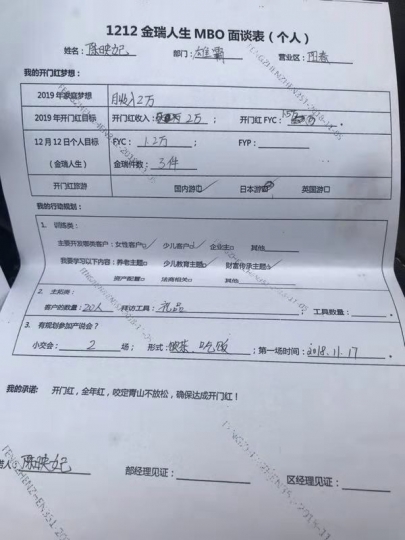 1212金瑞人生MBO面谈表（个人）
姓名：陈映妃 部门：雄霸 营业区：
我的开门红梦想：
2019年家庭梦想 月收入2万
2019年开门红目标 开门红收入：2万 开门红FYC：
12月12日个人目标 FYC：1.2万 FYP：
（金瑞人生） 金瑞件数：3件
开门红旅游 国内游□✓ 日本游 英国游□
我的行动规划：
1. 训练类：
主要开发哪类客户：女性客户□✓ 少儿客户□✓ 企业主□ 其他
我要学习以下内容：养老主题□ 少儿教育主题□✓ 财富传承主题□
资产配置□ 法商相关□ 其他
2. 主拓类：
客户的数量：20人 拜访工具：礼品 工具数量：
3. 有规划参加产说会？
小交会：2 场； 形式：喝茶、吃饭；第一场时间：2018.11.17
我的承诺： 开门红，全年红，咬定青山不放松，确保达成开门红！
陈映妃 部经理见证： 区经理见证：